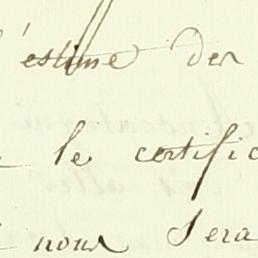 l'estime des
le certific
nous sera